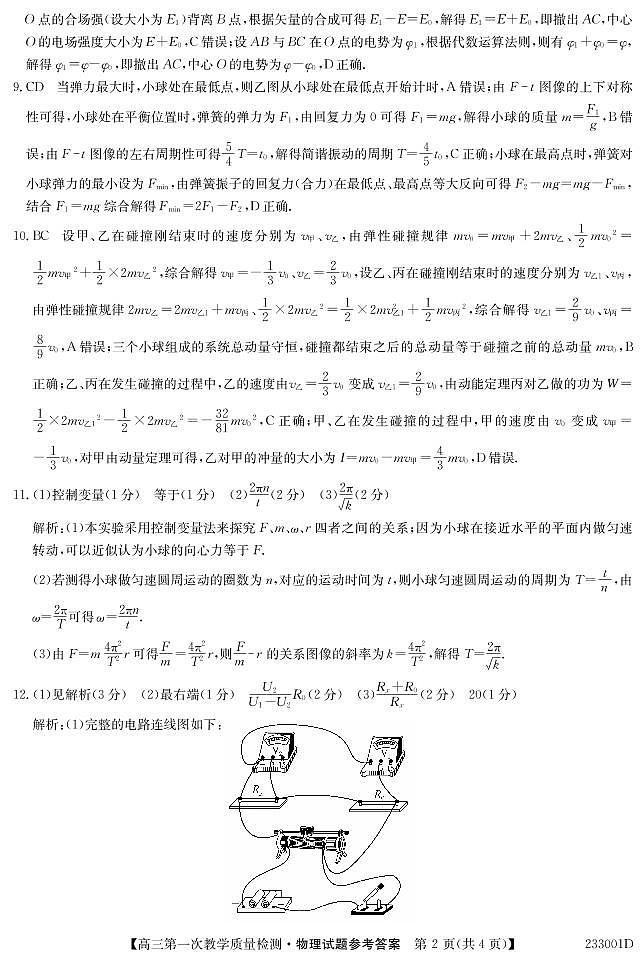 O 点的合场强(设大小为 E₁)背离 B 点,根据矢量的合成可得 E₁-E=E₀,解得 E₁=E+E₀,即撤出 AC,中心
O 的电场强度大小为 E+E₀,C 错误;设 AB 与 BC 在 O 点的电势为 φ₁,根据代数运算法则,则有 φ₁+φ₀=φ,
解得 φ₁=φ-φ₀,即撤出 AC,中心 O 的电势为 φ-φ₀,D 正确.
9. CD 当弹力最大时,小球处在最低点,则乙图从小球处在最低点开始计时,A 错误;由 F-t 图像的上下对称
性可得,小球处在平衡位置时,弹簧的弹力为 F₁,由回复力为 0 可得 F₁=mg,解得小球的质量 m=F₁/g,B 错
误;由 F-t 图像的左右周期性可得 5/4 T=t₀,解得简谐振动的周期 T=4/5 t₀,C 正确;小球在最高点时,弹簧对
小球弹力的最小设为 Fmin,由弹簧振子的回复力(合力)在最低点、最高点等大反向可得 F₂-mg=mg-Fmin,
结合 F₁=mg 综合解得 Fmin=2F₁-F₂,D 正确.
10. BC 设甲、乙在碰撞刚结束时的速度分别为 v甲、v乙,由弹性碰撞规律 mv₀=mv甲+2mv乙、1/2 mv₀²=
1/2 mv甲²+1/2×2mv乙²,综合解得 v甲=-1/3 v₀、v乙=2/3 v₀,设乙、丙在碰撞刚结束时的速度分别为 v乙1、v丙,
由弹性碰撞规律 2mv乙=2mv乙1+mv丙、1/2×2mv乙²=1/2×2mv乙1²+1/2 mv丙²,综合解得 v乙1=2/9 v₀、v丙=
8/9 v₀,A 错误;三个小球组成的系统总动量守恒,碰撞都结束之后的总动量等于碰撞之前的总动量 mv₀,B
正确;乙、丙在发生碰撞的过程中,乙的速度由 v乙=2/3 v₀ 变成 v乙1=2/9 v₀,由动能定理丙对乙做的功为 W=
1/2×2mv乙1²-1/2×2mv乙²=-32/81 mv₀²,C 正确;甲、乙在发生碰撞的过程中,甲的速度由 v₀ 变成 v甲=
-1/3 v₀,对甲由动量定理可得,乙对甲的冲量的大小为 I=mv₀-mv甲=4/3 mv₀,D 错误.
11. (1)控制变量(1 分) 等于(1 分) (2)2πn/t(2 分) (3)2π/√k(2 分)
解析:(1)本实验采用控制变量法来探究 F、m、ω、r 四者之间的关系;因为小球在接近水平的平面内做匀速
转动,可以近似认为小球的向心力等于 F.
(2)若测得小球做匀速圆周运动的圈数为 n,对应的运动时间为 t,则小球匀速圆周运动的周期为 T=t/n,由
ω=2π/T 可得 ω=2πn/t.
(3)由 F=m 4π²/T² r 可得 F/m=4π²/T² r,则 F/m-r 的关系图像的斜率为 k=4π²/T²,解得 T=2π/√k.
12. (1)见解析(3 分) (2)最右端(1 分) U₂/(U₁-U₂) R₀(2 分) (3)(Rx+R₀)/Rx(2 分) 20(1 分)
解析:(1)完整的电路连线图如下:
V
Rx
【高三第一次教学质量检测·物理试题参考答案 第 2 页(共 4 页)】 233001D